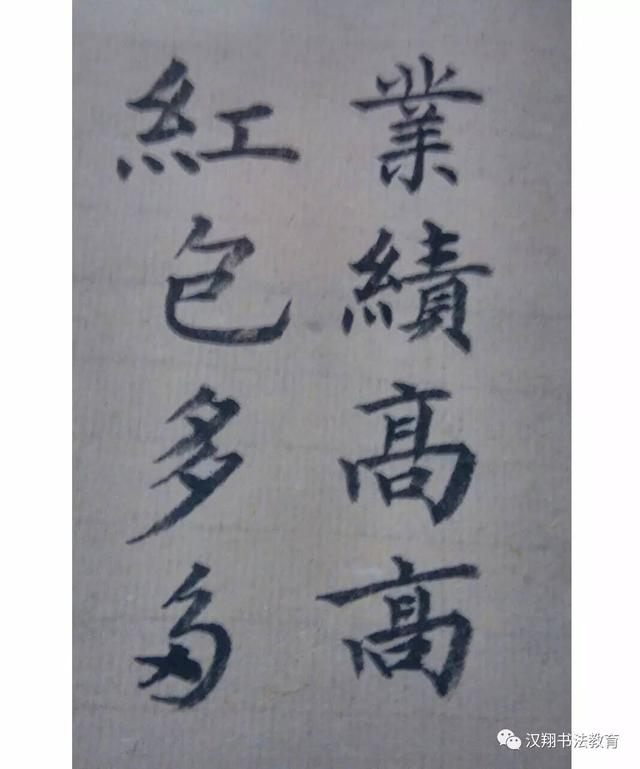 業績髙髙
紅包多多
汉翔书法教育